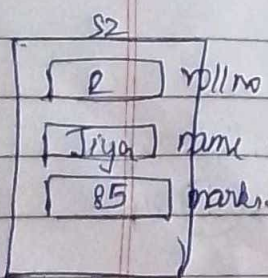 S2
2 roll no
Jiya name
85 marks.